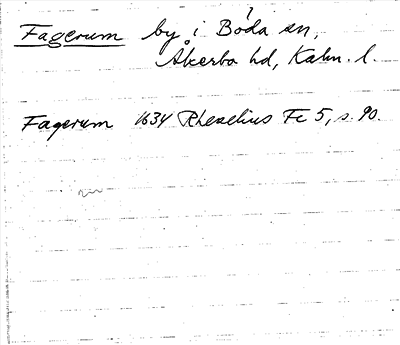 Fagerum by i Böda sn,
Åkerbo hd, Kalm. l.
Fagerum 1634 Rhezelius Fc 5, s. 90.